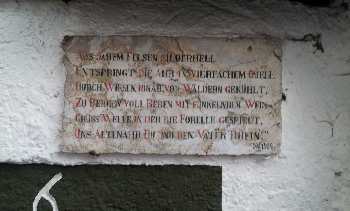 "AUS JÄHEM FELSEN SILBERHELL
ENTSPRINGT DIE AHR IN VIERFACHEM QUELL
DURCH WIESEN HINAB VON WÄLDERN GEKÜHLT,
ZU BERGEN VOLL REBEN MIT FUNKELNDEM WEIN
GRÜSS WELLE IN DER DIE FORELLE GESPIELT,
UNS ALTENAHR UND DEN VATER RHEIN!"
6